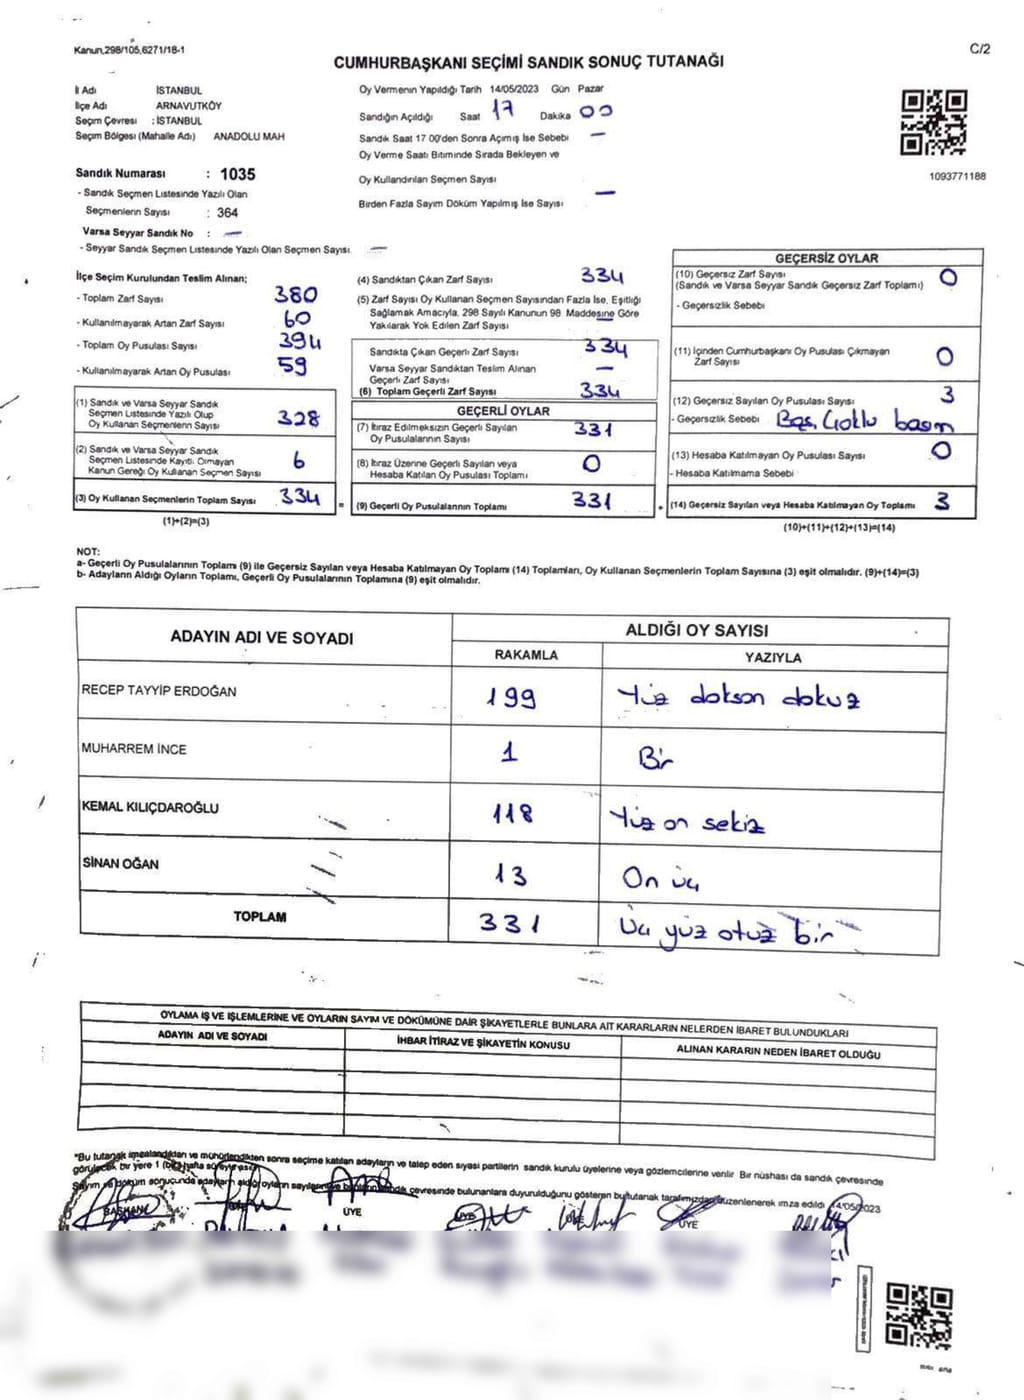 Kanun,298/105,6271/18-1
C/2
CUMHURBAŞKANI SEÇİMİ SANDIK SONUÇ TUTANAĞI
İl Adı İSTANBUL
İlçe Adı ARNAVUTKÖY
Seçim Çevresi : İSTANBUL
Seçim Bölgesi (Mahalle Adı) ANADOLU MAH
Sandık Numarası : 1035
- Sandık Seçmen Listesinde Yazılı Olan
Seçmenlerin Sayısı : 364
Varsa Seyyar Sandık No : —
- Seyyar Sandık Seçmen Listesinde Yazılı Olan Seçmen Sayısı —
Oy Vermenin Yapıldığı Tarih 14/05/2023 Gün Pazar
Sandığın Açıldığı Saat 17 Dakika 00
Sandık Saat 17 00'den Sonra Açımış İse Sebebi —
Oy Verme Saati Bitiminde Sırada Bekleyen ve
Oy Kullandırılan Seçmen Sayısı
Birden Fazla Sayım Döküm Yapılmış İse Sayısı —
1093771188
İlçe Seçim Kurulundan Teslim Alınan;
- Toplam Zarf Sayısı 380
- Kullanılmayarak Artan Zarf Sayısı 60
- Toplam Oy Pusulası Sayısı 394
- Kullanılmayarak Artan Oy Pusulası 59
(1) Sandık ve Varsa Seyyar Sandık
Seçmen Listesinde Yazılı Olup
Oy Kullanan Seçmenlerin Sayısı 328
(2) Sandık ve Varsa Seyyar Sandık
Seçmen Listesinde Kayıtlı Olmayan
Kanun Gereği Oy Kullanan Seçmen Sayısı 6
(3) Oy Kullanan Seçmenlerin Toplam Sayısı 334 =
(1)+(2)=(3)
(4) Sandıktan Çıkan Zarf Sayısı 334
(5) Zarf Sayısı Oy Kullanan Seçmen Sayısından Fazla İse, Eşitliği
Sağlamak Amacıyla, 298 Sayılı Kanunun 98. Maddesine Göre
Yakılarak Yok Edilen Zarf Sayısı —
Sandıkta Çıkan Geçerli Zarf Sayısı 334
Varsa Seyyar Sandıktan Teslim Alınan
Geçerli Zarf Sayısı —
(6) Toplam Geçerli Zarf Sayısı 334
GEÇERLİ OYLAR
(7) İtiraz Edilmeksizin Geçerli Sayılan
Oy Pusulalarının Sayısı 331
(8) İtiraz Üzerine Geçerli Sayılan veya
Hesaba Katılan Oy Pusulası Toplamı 0
(9) Geçerli Oy Pusulalarının Toplamı 331 +
GEÇERSİZ OYLAR
(10) Geçersiz Zarf Sayısı 0
(Sandık ve Varsa Seyyar Sandık Geçersiz Zarf Toplamı)
- Geçersizlik Sebebi
(11) İçinden Cumhurbaşkanı Oy Pusulası Çıkmayan
Zarf Sayısı 0
(12) Geçersiz Sayılan Oy Pusulası Sayısı 3
- Geçersizlik Sebebi
(13) Hesaba Katılmayan Oy Pusulası Sayısı 0
- Hesaba Katılmama Sebebi
(14) Geçersiz Sayılan veya Hesaba Katılmayan Oy Toplamı 3
(10)+(11)+(12)+(13)=(14)
NOT:
a- Geçerli Oy Pusulalarının Toplamı (9) ile Geçersiz Sayılan veya Hesaba Katılmayan Oy Toplamı (14) Toplamları, Oy Kullanan Seçmenlerin Toplam Sayısına (3) eşit olmalıdır. (9)+(14)=(3)
b- Adayların Aldığı Oyların Toplamı, Geçerli Oy Pusulalarının Toplamına (9) eşit olmalıdır.
ADAYIN ADI VE SOYADI ALDIĞI OY SAYISI
RAKAMLA YAZIYLA
RECEP TAYYİP ERDOĞAN 199 Yüz doksan dokuz
MUHARREM İNCE 1 Bir
KEMAL KILIÇDAROĞLU 118 Yüz on sekiz
SİNAN OĞAN 13 On üç
TOPLAM 331 Üç yüz otuz bir
OYLAMA İŞ VE İŞLEMLERİNE VE OYLARIN SAYIM VE DÖKÜMÜNE DAİR ŞİKAYETLERLE BUNLARA AİT KARARLARIN NELERDEN İBARET BULUNDUKLARI
ADAYIN ADI VE SOYADI İHBAR İTİRAZ VE ŞİKAYETİN KONUSU ALINAN KARARIN NEDEN İBARET OLDUĞU
"Bu tutanak imzalandıktan ve mühürlendikten sonra seçime katılan adayların ve talep eden siyasi partilerin sandık kurulu üyelerine veya gözlemcilerine verilir Bir nüshası da sandık çevresinde
görülecek bir yere 1 (bir) hafta süreyle asılır
Sayım ve döküm sonuçunda adayların aldığı oyların sayılarının çevresinde bulunanlara duyurulduğunu gösteren bu tutanak tarafımızdan düzenlenerek imza edildi 14/05/2023
BAŞKAN
ÜYE
ÜYE